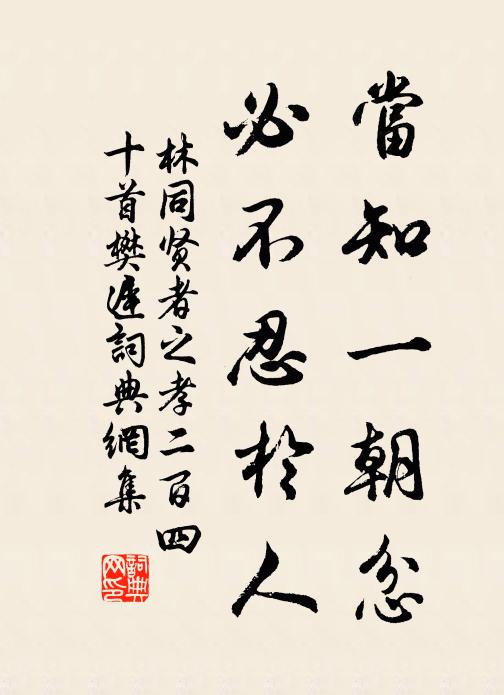 當知一朝忿
必不忍於人
林同贤者之孝二百四
十首樊遲詞典網集
詞典网印